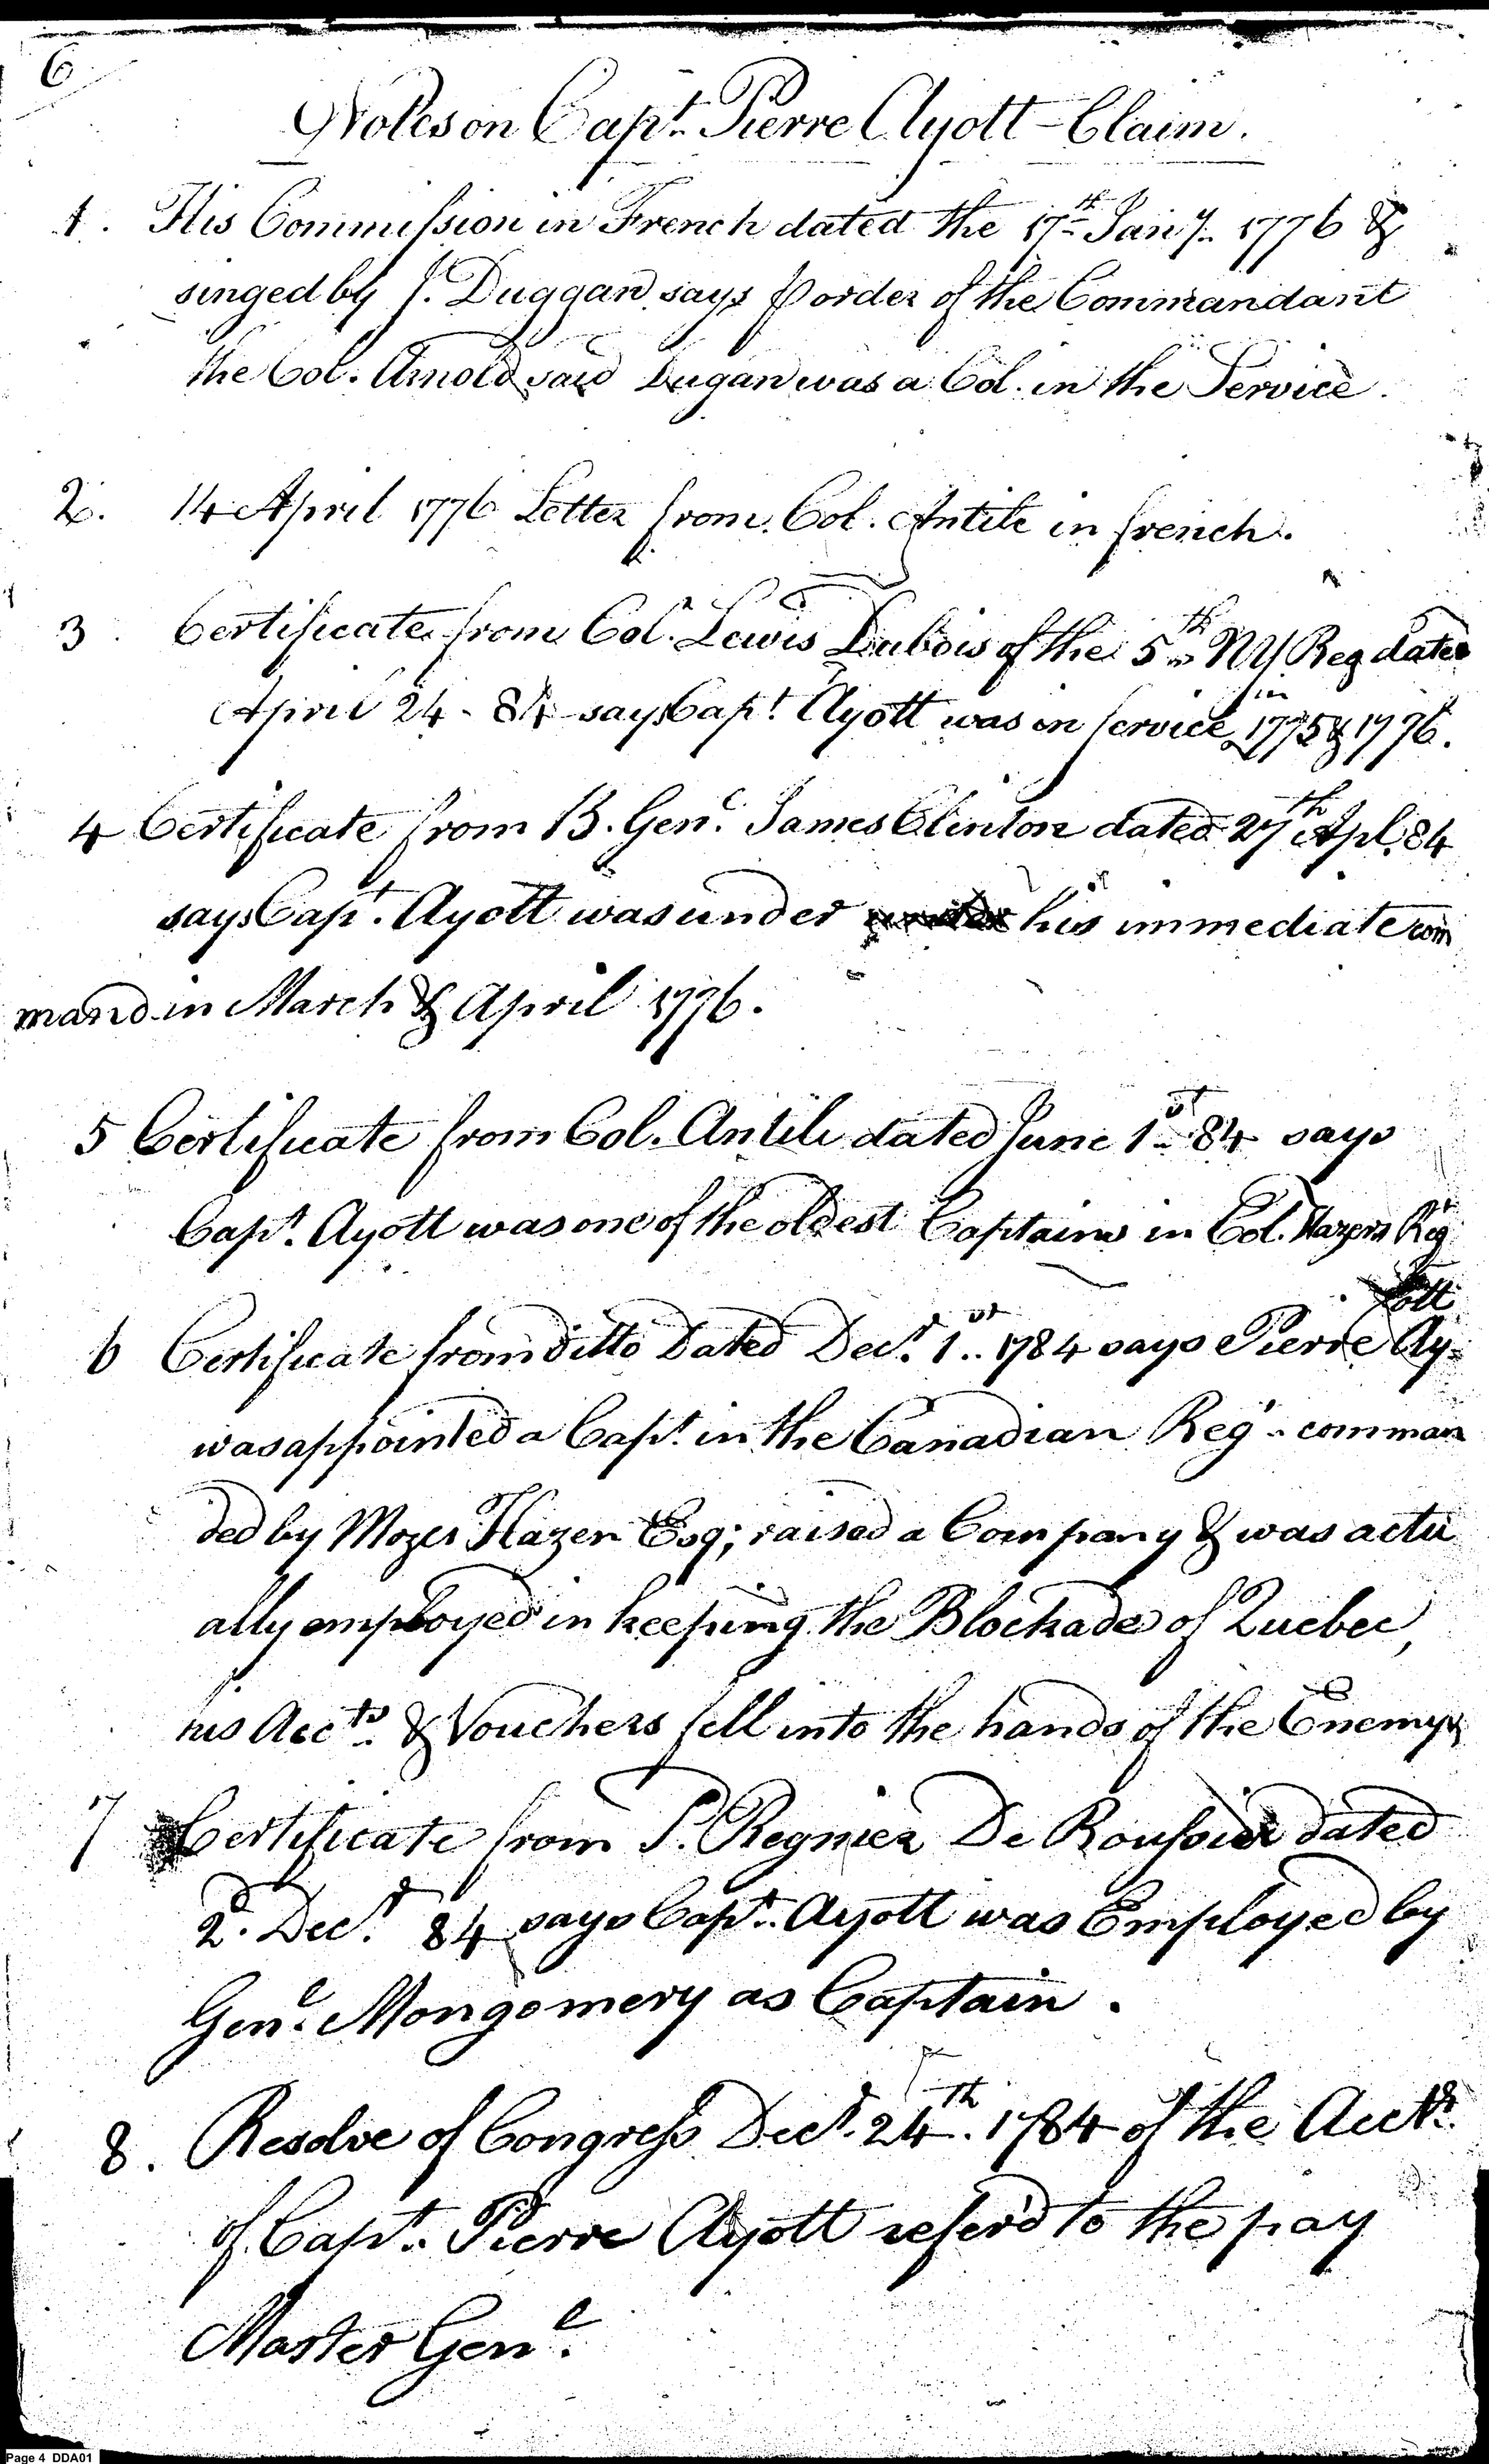 6
Notes on Capt. Pierre Ayott - Claim.
1. His Commission in French dated the 17th Jany. 1776 &
singed by J. Duggan says p order of the Commandant
the Col. Arnold said Dugan was a Col. in the Service.
2. 14 April 1776 Letter from Col. Antile in french.
3. Certificate from Col. Lewis Dubois of the 5th NY Reg dated
April 24 - 84 says Capt. Ayott was in service in 1775 & 1776.
4 Certificate from B. Genl. James Clinton dated 27th Apl. 84
says Capt. Ayott was under his immediate com
mand in March & April 1776.
5 Certificate from Col. Antile dated June 1st 84 says
Capt. Ayott was one of the oldest Captains in Col. Hazens Reg
6 Certificate from ditto Dated Decr. 1st 1784 says Pierre Ay=
ott
was appointed a Capt. in the Canadian Regt. comman
ded by Mozes Hazen Esq; raised a Company & was actu
ally employed in keeping the Blockade of Quebec,
his Accts. & Vouchers fell into the hands of the Enemy
7 Certificate from P. Regnier De Roussier dated
2d. Decr. 84 says Capt. Ayott was Employed by
Genl. Mongomery as Captain.
8. Resolve of Congress Decr. 24th. 1784 of the Accts.
of Capt. Pierre Ayott refer'd to the pay
Master Genl.
Page 4 DDA01